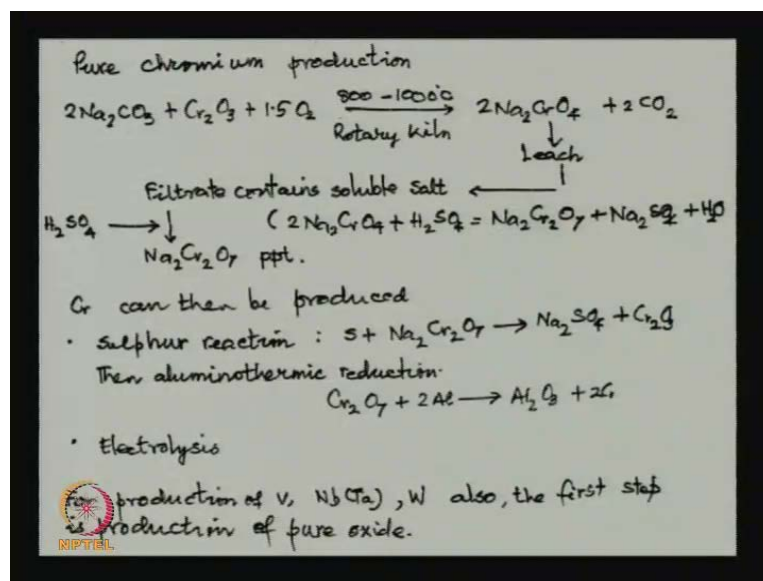 Pure chromium production
2Na₂CO₃ + Cr₂O₃ + 1.5O₂ 800-1000°C → 2Na₂CrO₄ + 2CO₂
Rotary Kiln
Leach
Filtrate contains soluble salt
H₂SO₄ → (2Na₂CrO₄ + H₂SO₄ = Na₂Cr₂O₇ + Na₂SO₄ + H₂O
Na₂Cr₂O₇ ppt.
Cr can then be produced
• Sulphur reaction : S + Na₂Cr₂O₇ → Na₂SO₄ + Cr₂O₃
Then aluminothermic reduction.
Cr₂O₇ + 2Al → Al₂O₃ + 2Cr
• Electrolysis
For production of V, Nb(Ta), W also, the first step
is production of pure oxide.
NPTEL